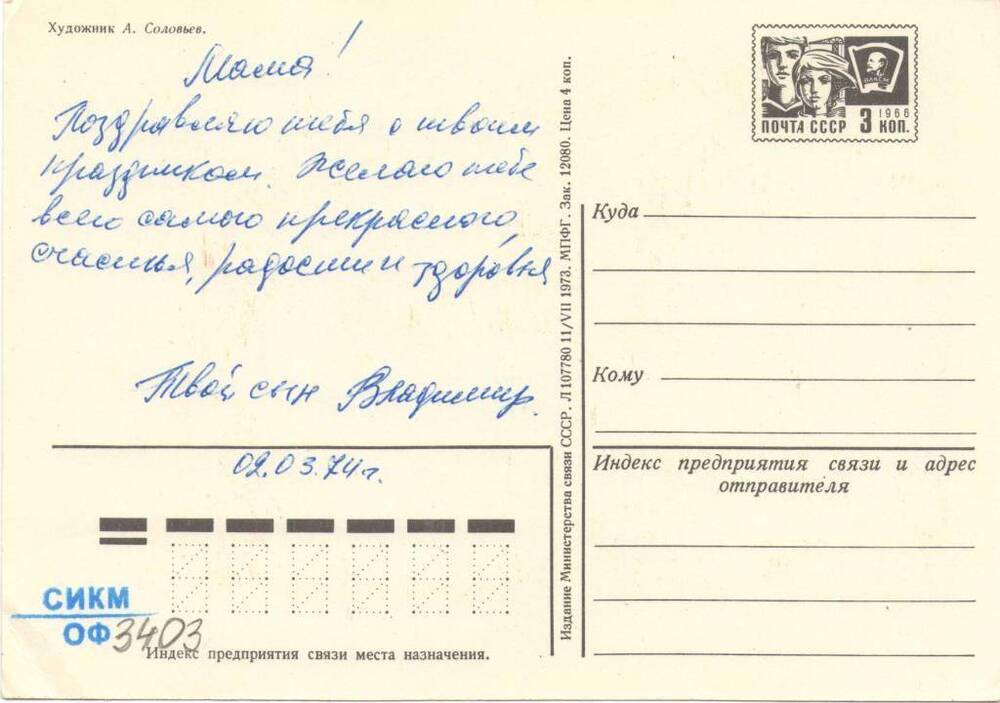 Художник А. Соловьев.
Мама!
Поздравляю тебя с твоим
праздником. Желаю тебе
всего самого прекрасного,
счастья, радости и здоровья
Твой сын Владимир.
02.03.74 г.
СИКМ
ОФ 3403
Индекс предприятия связи места назначения.
Издание Министерства связи СССР. Л107780 11/VII 1973. МПФГ. Зак. 12080. Цена 4 коп.
ВЛКСМ
1966
ПОЧТА СССР 3 КОП.
Куда
Кому
Индекс предприятия связи и адрес
отправителя